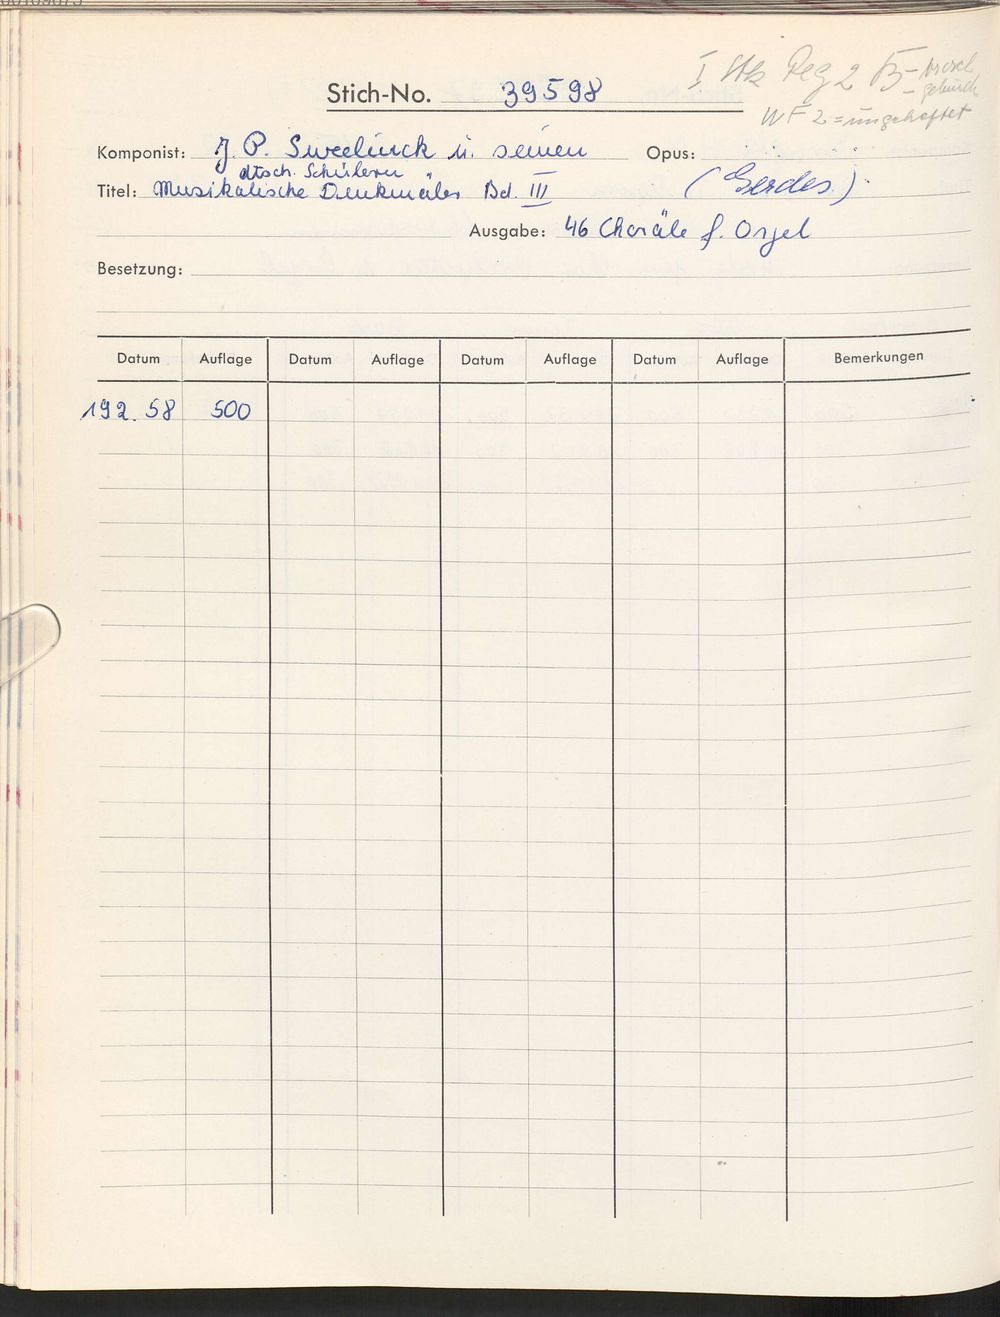 I Stk Reg 2 B - brosch
- gebunde
WF 2 = ungeheftet
Stich-No. 39598
Komponist: J. P. Sweelinck u. seinen Opus:
dtsch. Schülern
Titel: Musikalische Denkmäler Bd. III (Gerdes)
Ausgabe: 46 Choräle f. Orgel
Besetzung:
Datum Auflage Datum Auflage Datum Auflage Datum Auflage Bemerkungen
192. 58 500